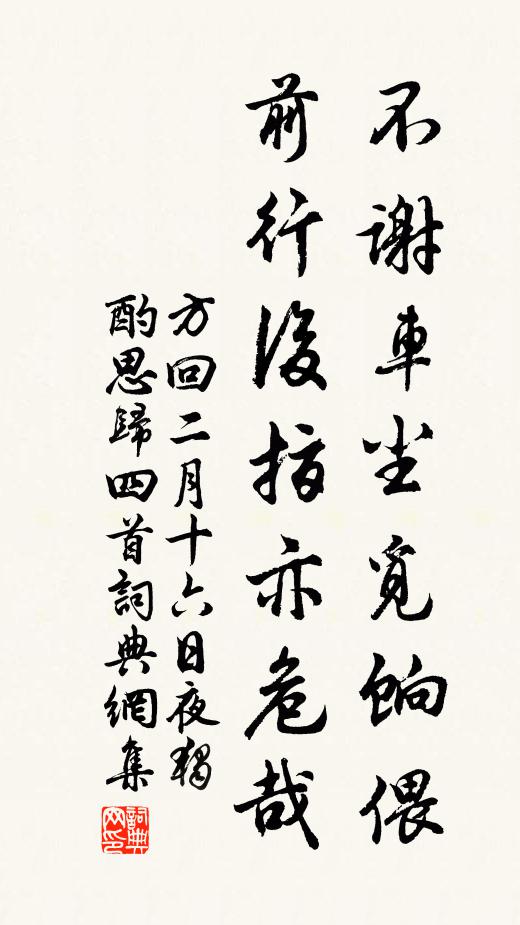 不謝車尘覓餉偎
前行後指亦危哉
方回二月十六日夜獨
酌思歸四首詞典網集
詞典网印